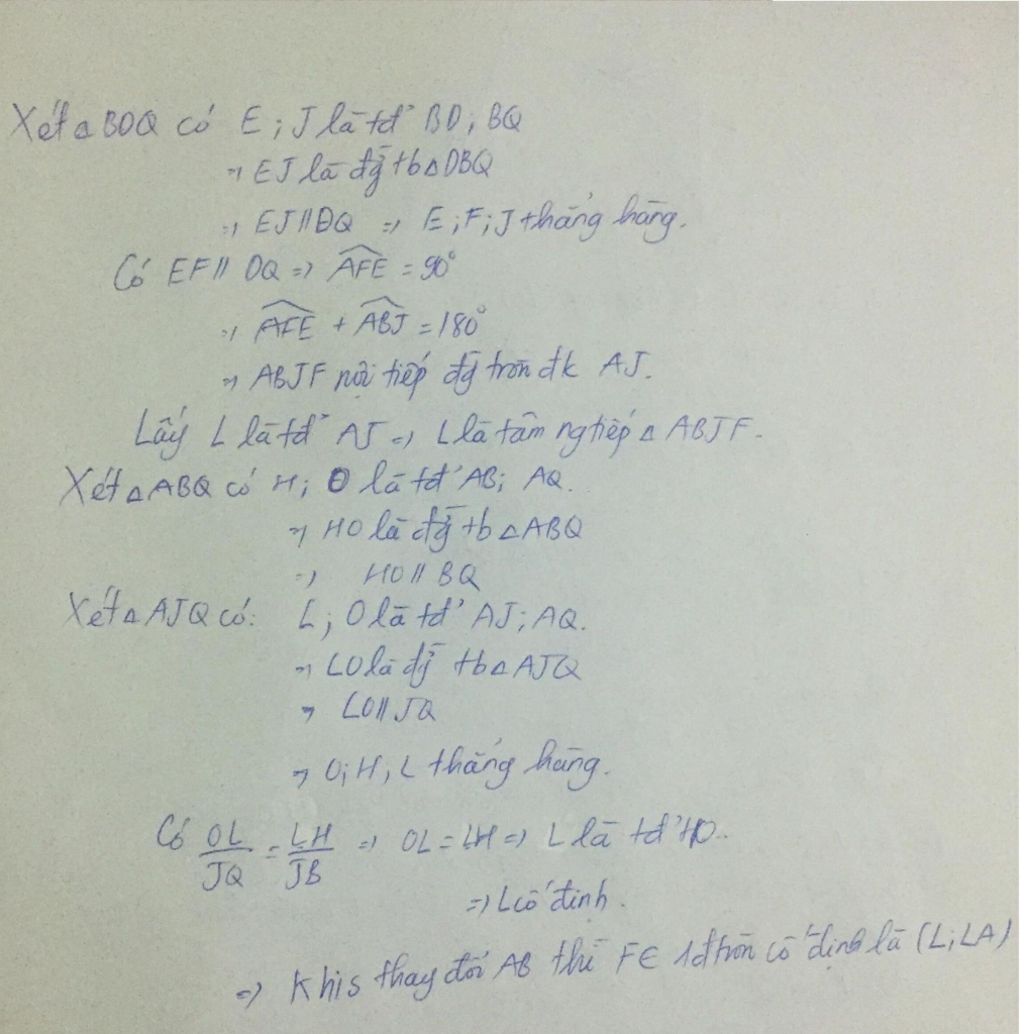 Xét △BDQ có E; J là tđ' BD; BQ
⇒ EJ là đg̃ tb △DBQ
⇒ EJ // DQ ⇒ E; F; J thẳng hàng.
Có EF // DQ ⇒ \widehat{AFE} = 90°
⇒ \widehat{AFE} + \widehat{ABJ} = 180°
⇒ ABJF nội tiếp đg̃ tròn đk AJ.
Lấy L là tđ' AJ ⇒ L là tâm ng tiếp △ ABJF.
Xét △ABQ có H; O là tđ' AB; AQ.
⇒ HO là đg̃ tb △ABQ
⇒ HO // BQ
Xét △AJQ có: L; O là tđ' AJ; AQ.
⇒ LO là đg̃ tb △AJQ
⇒ LO // JQ
⇒ O; H, L thẳng hàng.
Có OL/JQ = LH/JB ⇒ OL = LH ⇒ L là tđ' HO.
⇒ L cố định.
⇒ Khi S thay đổi AB thì F ∈ 1 đ tròn cố định là (L; LA)